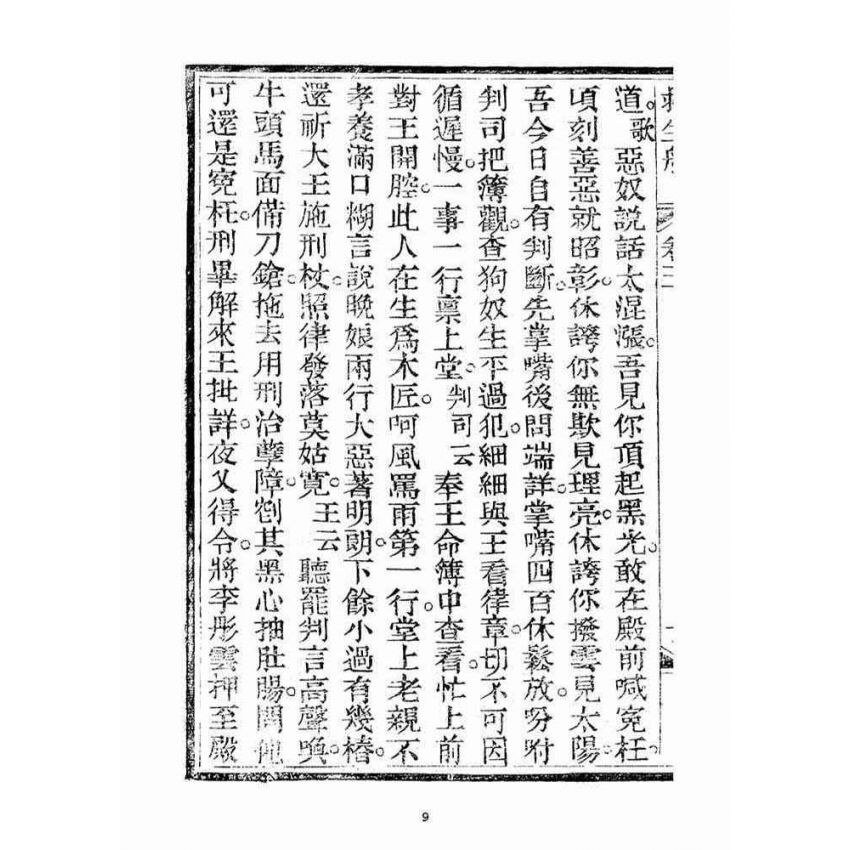 救生船 卷三
道歌惡奴說話太混漲。吾見你頂起黑光。敢在殿前喊冤枉。
頃刻善惡就昭彰。休誇你無欺見理亮。休誇你撥雲見太陽。
吾今日自有判斷。先掌嘴後問端詳。掌嘴四百休鬆放。吩咐
判司把簿觀。查狗奴生平過犯。細細與王看律章。切不可因
循遲慢。一事一行禀上堂。判司云奉王命簿中查看。忙上前
對王開腔。此人在生爲木匠。呵風罵雨第一行。堂上老親不
孝養。滿口糊言說晚娘。兩行大惡著明朗。下餘小過有幾樁。
還祈大王施刑杖。照律發落莫姑寬。王云聽罷判言高聲喚。
牛頭馬面備刀鎗。拖去用刑治孽障。割其黑心抽肚腸。問他
可還是寃枉。刑畢解來王批詳。夜叉得令。將李彤雲押至殿
9